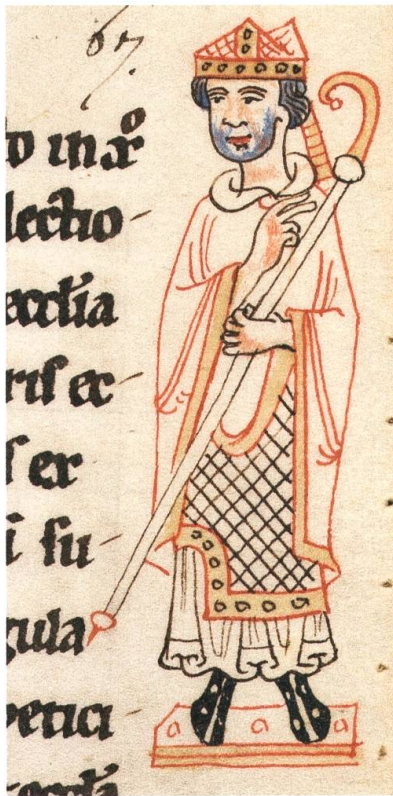 67.
o in xͦ
lectio-
eccl̄ia
ris ec-
s ex
ī su-
gula
petici-